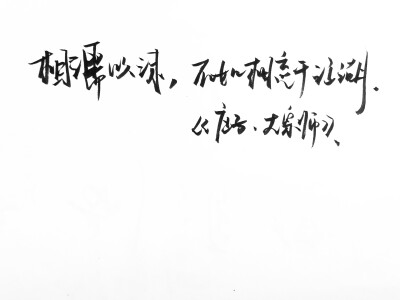 相濡以沫，不如相忘于江湖.
《庄子·大宗师》、